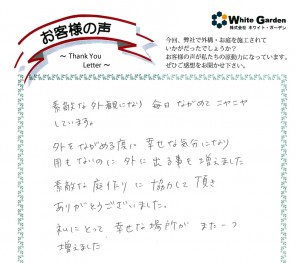 お客様の声
～ Thank You
Letter ～
White Garden
株式会社 ホワイト・ガーデン
今回、弊社で外構・お庭を施工されて
いかがだったでしょうか?
お客様の声が私たちの原動力になっています。
ぜひご感想をお聞かせ下さい。
素敵な外観になり 毎日 ながめて ニヤニヤ
しています。
外をながめる度に 幸せな気分になり
用もないのに 外に出る事も増えました
素敵な庭作りに 協力して頂き
ありがとうございました。
私にとって、幸せな場所が また一つ
増えました